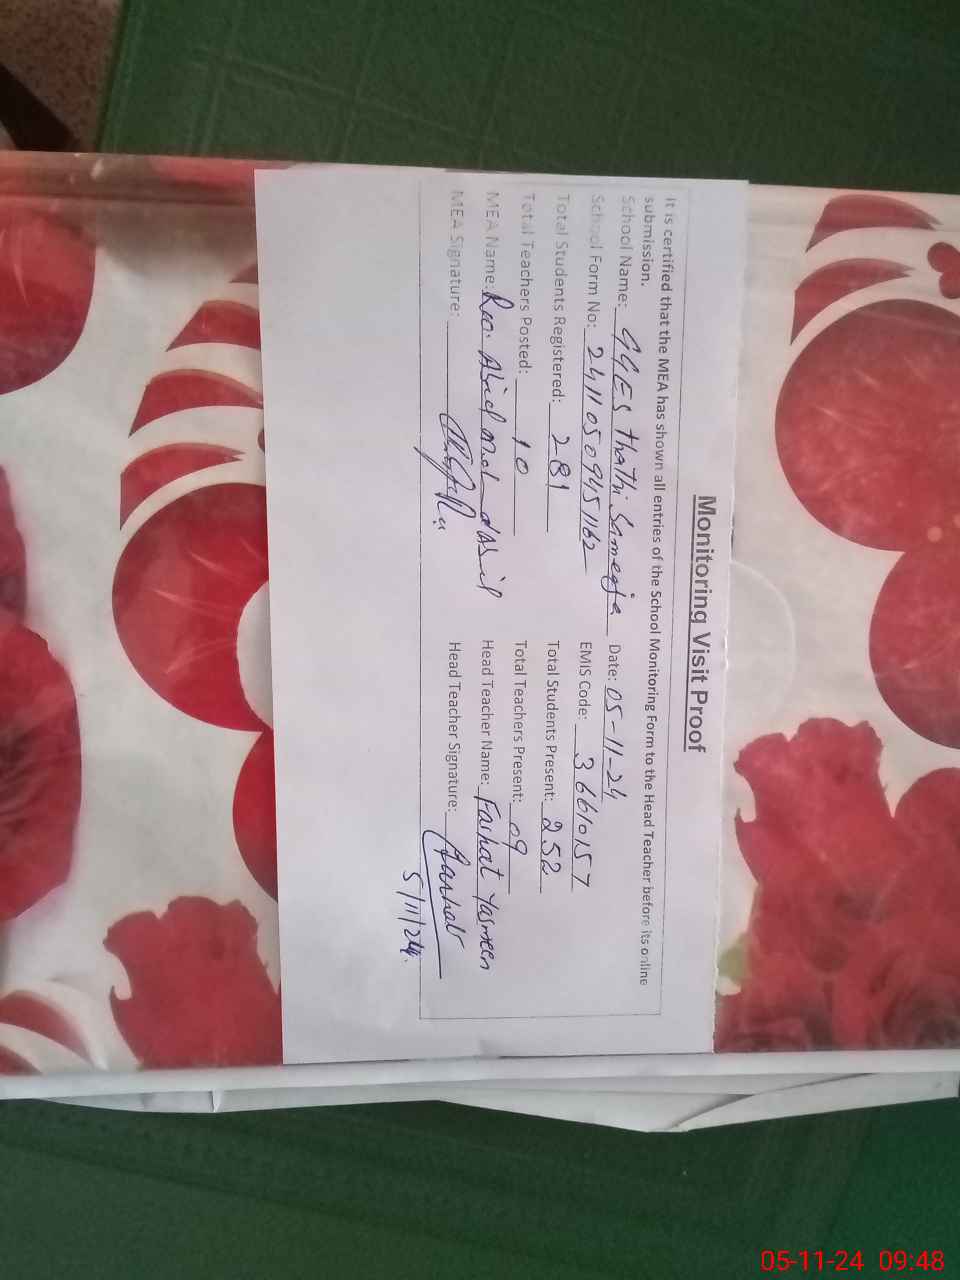 Monitoring Visit Proof
It is certified that the MEA has shown all entries of the School Monitoring Form to the Head Teacher before its online
submission.
School Name: GGES Thathi Samegja Date: 05-11-24
School Form No: 24110509451162 EMIS Code: 36610157
Total Students Registered: 281 Total Students Present: 252
Total Teachers Posted: 10 Total Teachers Present: 09
MEA Name: Rao Abid Head Teacher Name: Farhat Yasmeen
MEA Signature: Head Teacher Signature: Farhat
5/11/24.
05-11-24 09:48